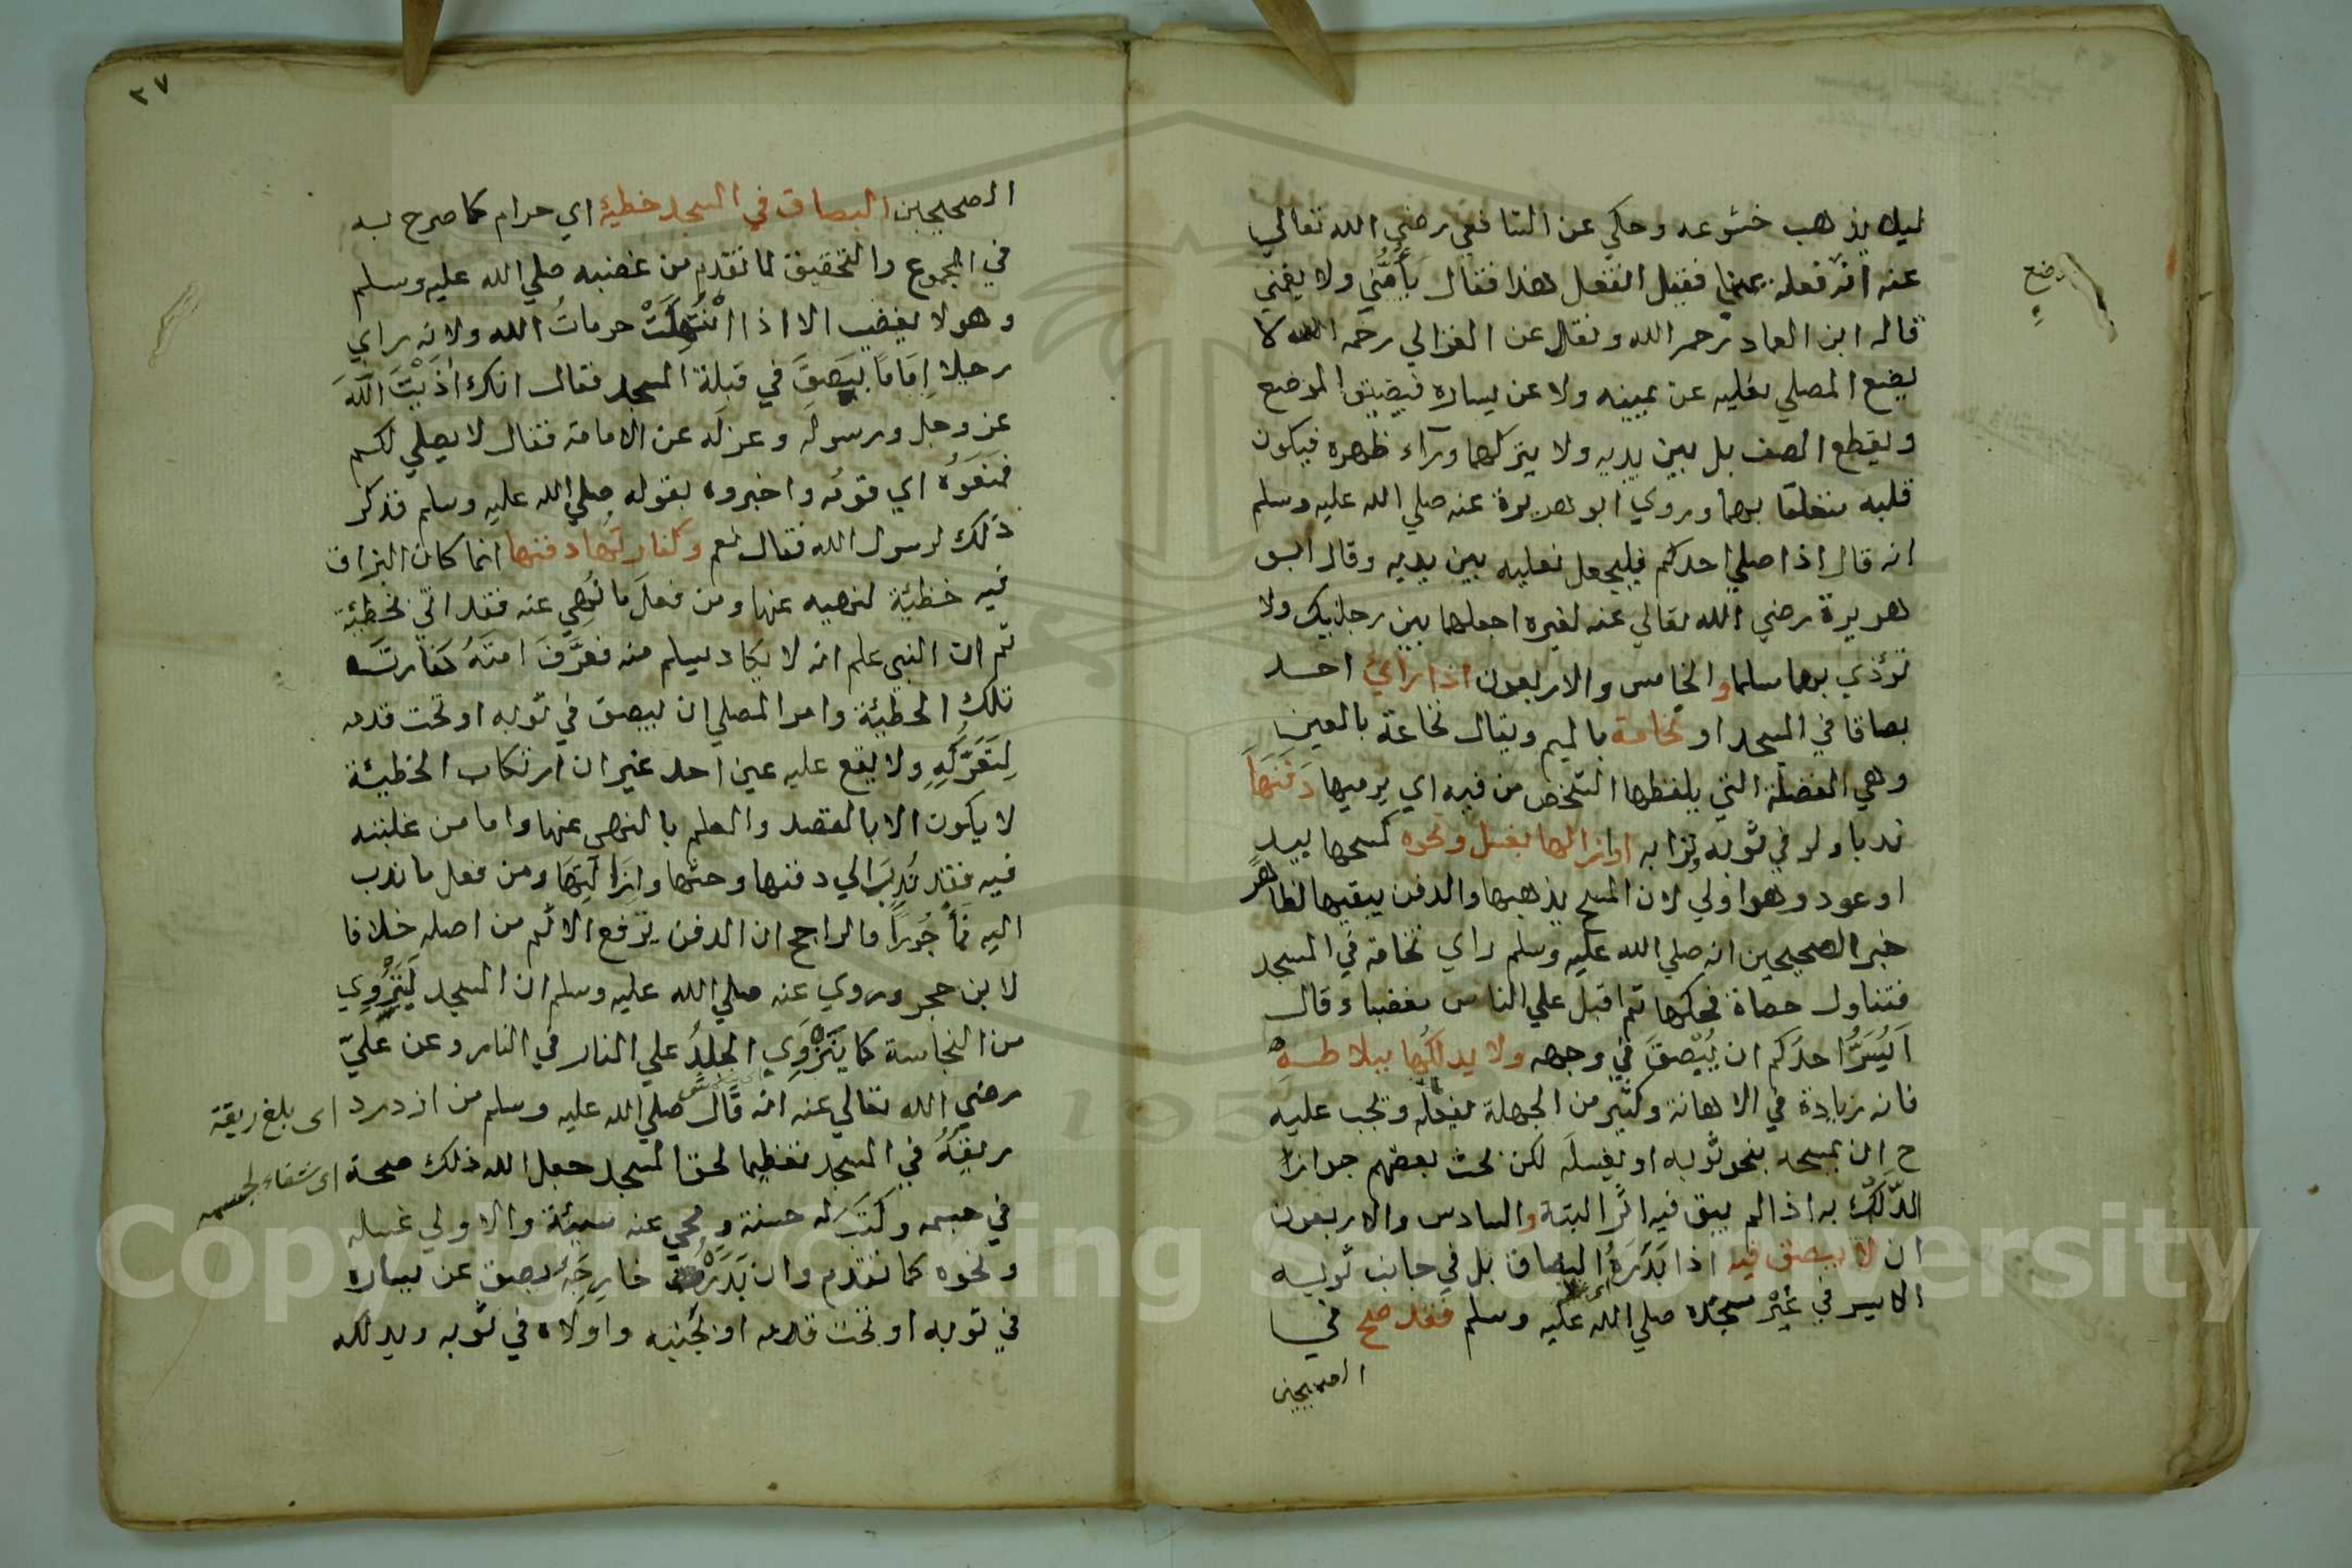 ليلا يذهب خشوعه وحكي عن الشافعي رضي الله تعالي
عنه انه فعله يمينا فقيل اتفعل هذا فقال يأمني ولا يغمني
قاله ابن العماد رحمر الله ونقل عن الغزالي رحمه الله لا
يضع المصلي نعليه عن يمينه ولا عن يساره فيضيق الموضع
ويقطع الصف بل بين يديه ولا يتركهما ورآء ظهره فيكون
قلبه متعلقا بهما وروي ابو هريرة عنه صلي الله عليه وسلم
انه قال اذا صلي احدكم فليجعل نعليه بين يديه وقال ابو
هريرة رضي الله تعالي عنه لغيره اجعلهما بين رجليك ولا
تؤذي بهما مسلما والخامس والاربعون اذا راي احد
بصاقا في المسجد او نخامة بالميم ويقال نخاعة بالعين
وهي الفضلة التي يلفظها الشخص من فيه اي يرميها دَفَنَهَا
ندبا ولو في ثوبه وترابه او ازالها بغسل ونحوه كمسحها بيد
او عود وهو اولي لان المسح يذهبها والدفن يبقيها لظاهر
خبر الصحيحين انه صلي الله عليه وسلم راي نخامة في المسجد
فتناول حصاة فحكها ثم اقبل علي الناس مغضبا وقال
اَيُسَرُّ احدكم ان يُبْصَقَ في وجهه ولا يدلكُها ببلاطِهِ
فانه زيادة في الاهانة وكثير من الجهلة يفعله ويجب عليه
ح ان يمسحه بنحو ثوبه او يغسله لكن بحث بعضهم جواز
الدّلك به اذا لم يبق فيه اثر البتة والسادس والاربعون
ان لا يبصق فيه اذا بَدَرَهُ البصاق بل في جانب ثوبه
الايسر في غير مسجده صلي الله عليه وسلم فقد صح في
الصحيحين
وضع
٢٧
الصحيحين البصاق في المسجد خطيئة اي حرام كما صرح به
في المجموع والتحقيق لما تقدم من غضبه صلي الله عليه وسلم
وهو لا يغضب الا اذا انْتُهِكَتْ حرماتُ الله ولانه راي
رجلا اِمَامًا يَبْصق في قبلة المسجد فقال انك أذَيْتَ اللهَ
عز وجل ورسوله وعزله عن الامامة فقال لا يصلي لكم
فمنعَوُه اي قومُه واخبروه بقوله صلي الله عليه وسلم فذكر
ذلك لرسول الله فقال نعم وكفارتها دفنها انما كان البزاق
فيه خطيئة لنهيه عنها ومن فعلَ ما نُهِي عنه فقد اتي بخطيئة
ثم ان النبي علم انه لا يكاد يسلم منه فعرَّفَ امتَهُ كفارتَه
تلك الخطيئة وامر المصلي ان يبصق في ثوبه او تحت قدمه
لِتَعَرُّكِهِ ولا يقع عليه عين احد غير ان ارتكاب الخطيئة
لا يكون الا بالقصد والعلم بالنهي عنها واما من غلبته
فيه فقد نُدِبَ الي دفنها وحتها وازالتها ومن فعل ما ندب
اليه فمأجُورًا والراجح ان الدفن يرفع الاثم من اصله خلافا
لابن حجر وروي عنه صلي الله عليه وسلم ان المسجد لَيَنْزَوِي
من النجاسة كما يَنْزَوِي الجِلدُ علي النار في النار وعن عَليّ
رضي الله تعالي عنه انه قال صلي الله عليه وسلم من ازدرد اى بلغ ريقة
ريقَهُ في المسجد تعظيما لحق المسجد جعل الله ذلك صحة اى شفاء لجسمه
في جسمه وكَتَبَ له حسنة ومحي عنه سيئة والاولي غسله
ونحوه كما تقدم وان بَدَرَهُ خارِجَهُ بصق عن يساره
في ثوبه او تحت قدمه او بجنبه واولاه في ثوبه ويدلكه